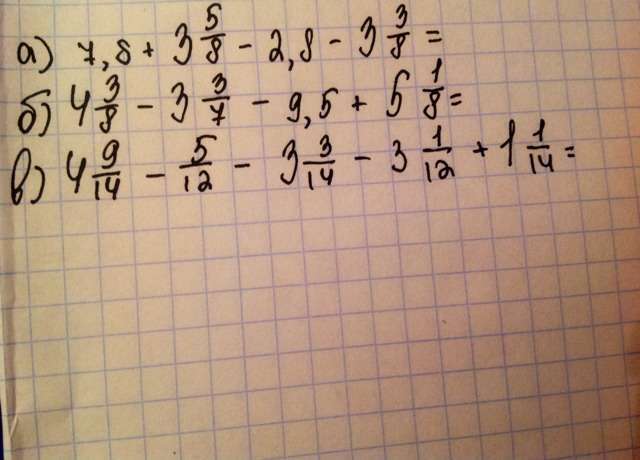 а) 7,8 + 3 5/8 - 2,8 - 3 3/8 =
б) 4 3/8 - 3 3/7 - 9,5 + 5 1/8 =
в) 4 9/14 - 5/12 - 3 3/14 - 3 1/12 + 1 1/14 =